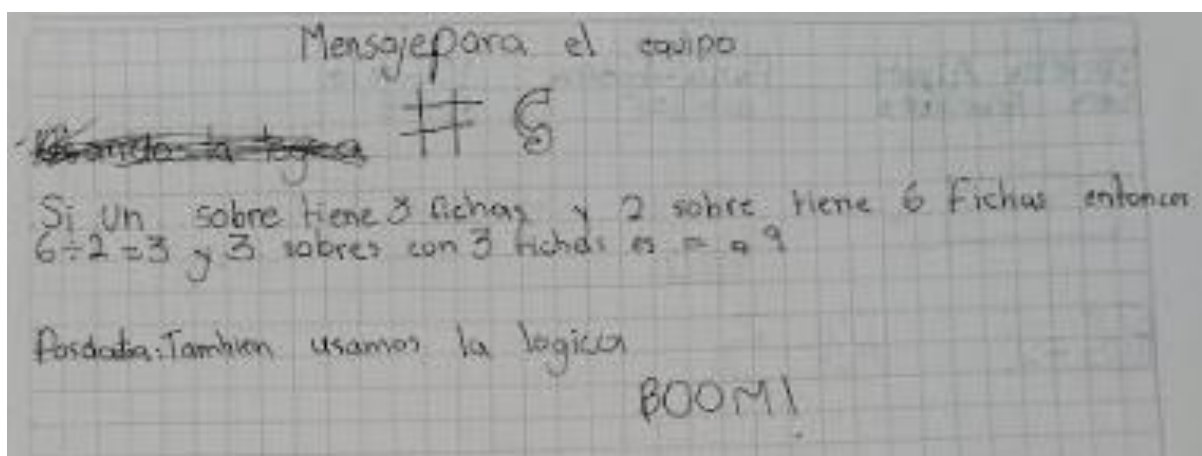 Mensaje para el equipo
# 6
Si un sobre tiene 3 fichas y 2 sobre tiene 6 Fichas entonces
6÷2=3 y 3 sobres con 3 fichas es = a 9
Posdata: Tambien usamos la logica
BOOM!